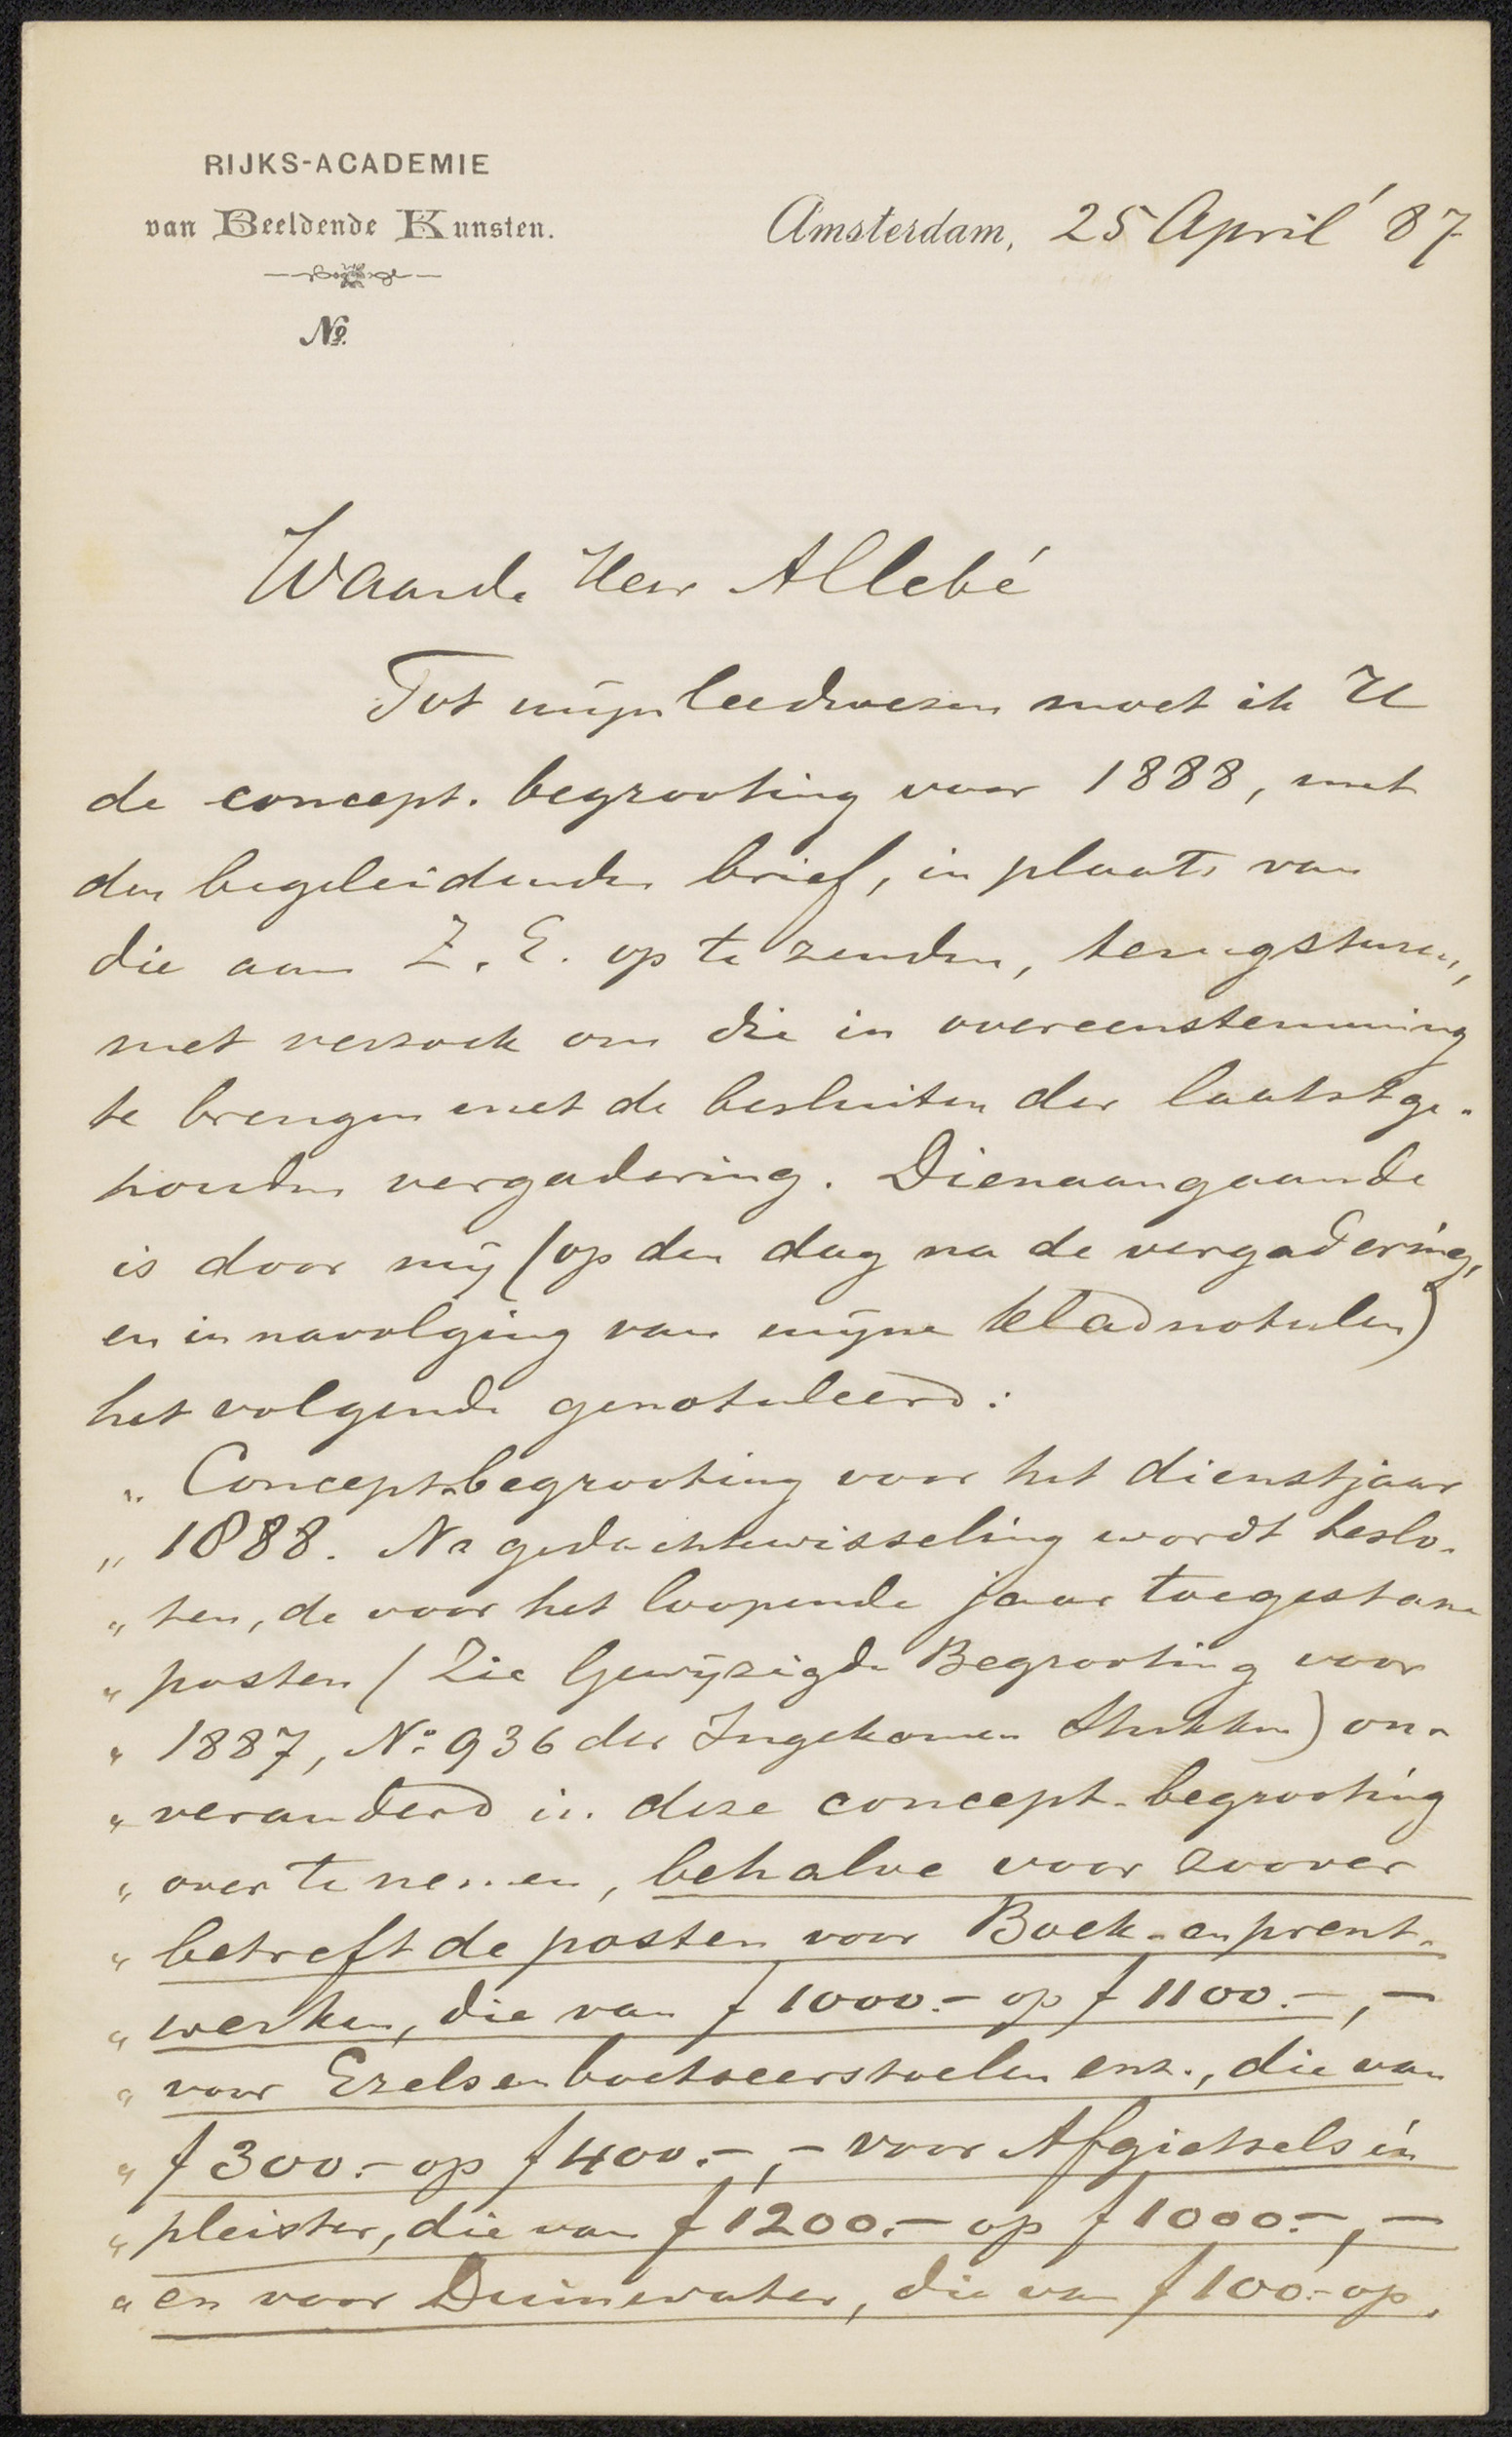 RIJKS-ACADEMIE
van Beeldende Kunsten.
Amsterdam, 25 April '87
No.
Waarde Heer Allebé
Tot mijn leedwezen moet ik U
de concept-begrooting voor 1888, met
den begeleidenden brief, in plaats van
die aan Z. E. op te zenden, terugsturen,
met verzoek om die in overeenstemming
te brengen met de besluiten der laatstge-
houden vergadering. Dienaangaande
is door mij (op den dag na de vergadering,
en in navolging van mijne kladnotulen)
het volgende genotuleerd:
„ Concept-begrooting voor het dienstjaar
„ 1888. Na gedachtewisseling wordt beslo-
„ ten, de voor het loopende jaar toegestane
„ posten (Zie Gewijzigde Begrooting voor
„ 1887, No. 936 der Ingekomen Stukken) on-
„ veranderd in deze concept-begrooting
„ over te nemen, behalve voor zoover
„ betreft de posten voor Boek- en prent-
„ werken, die van f 1000.- op f 1100.-, -
„ voor Ezels en boetseerstoelen enz., die van
„ f 300.- op f 400.-, - voor Afgietsels in
„ pleister, die van f 1200.- op f 1000.-, -
„ en voor Duinwater, die van f 100.- op